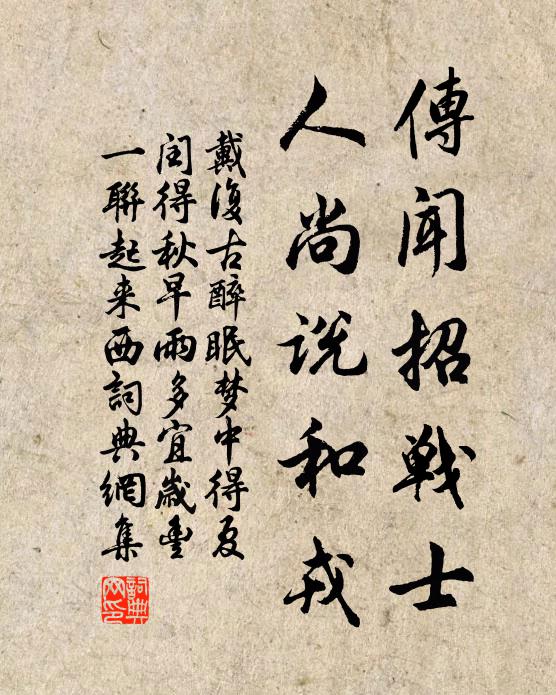 傳聞招戦士
人尚说和戎
戴復古醉眠梦中得夏
闰得秋早雨多宜歲豊
一聯起来西詞典網集
詞典网印